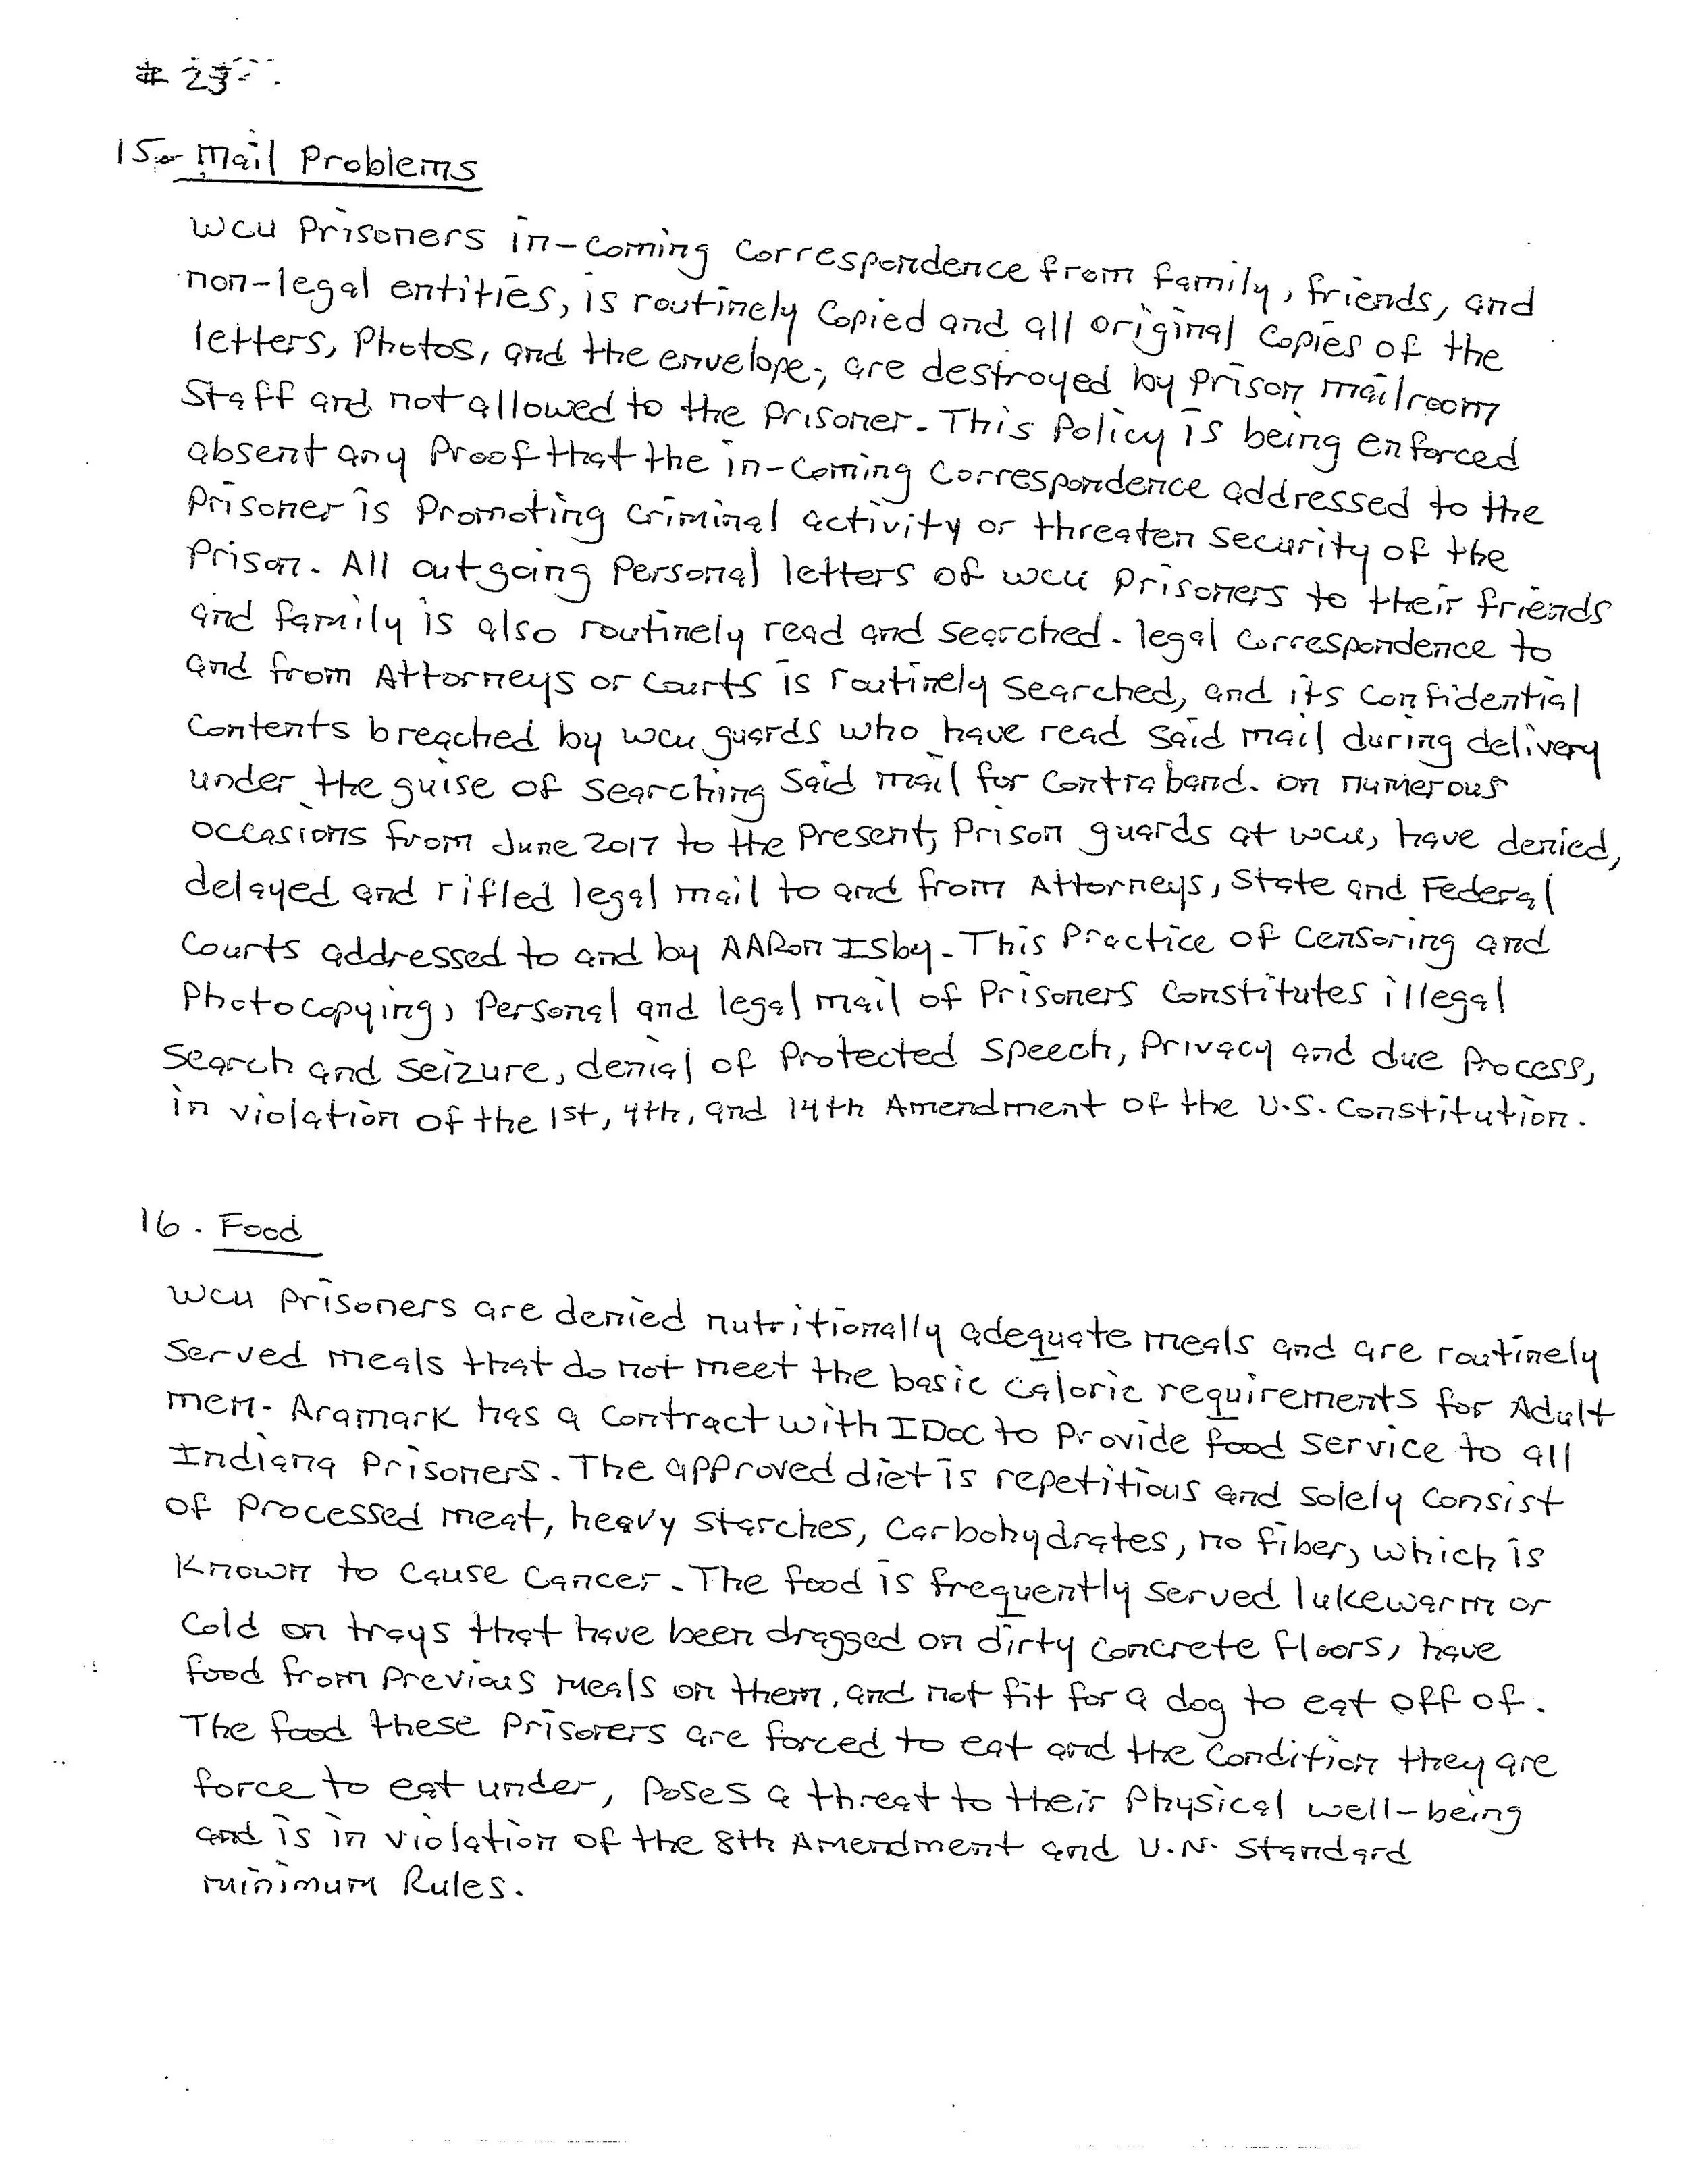 # 23
15. Mail Problems
WCU Prisoners in-coming correspondence from family, friends, and
non-legal entities, is routinely copied and all original copies of the
letters, Photos, and the envelope, are destroyed by prison mailroom
Staff and not allowed to the Prisoner. This Policy is being enforced
absent any Proof that the in-coming correspondence addressed to the
Prisoner is Promoting criminal activity or threaten security of the
Prison. All outgoing Personal letters of WCU Prisoners to their friends
and family is also routinely read and searched. legal correspondence to
and from Attorneys or courts is routinely searched, and its confidential
contents breached by WCU guards who have read said mail during delivery
under the guise of searching said mail for contraband. on numerous
occasions from June 2017 to the Present, Prison guards at WCU, have denied,
delayed and rifled legal mail to and from Attorneys, State and Federal
Courts addressed to and by AARon ISby. This Practice of censoring and
Photocopying, Personal and legal mail of Prisoners constitutes illegal
Search and seizure, denial of Protected speech, Privacy and due Process,
in violation of the 1st, 4th, and 14th Amendment of the U.S. Constitution.
16. Food
WCU prisoners are denied nutritionally adequate meals and are routinely
Served meals that do not meet the basic caloric requirements for Adult
men. Aramark has a contract with IDOC to Provide food service to all
Indiana Prisoners. The approved diet is repetitious and solely consist
of Processed meat, heavy starches, carbohydrates, no fiber, which is
Known to cause cancer. The food is frequently served lukewarm or
Cold on trays that have been dragged on dirty concrete floors, have
food from Previous meals on them, and not fit for a dog to eat off of.
The food these Prisoners are forced to eat and the condition they are
force to eat under, Poses a threat to their Physical well-being
and is in violation of the 8th Amendment and U.N. Standard
minimum Rules.